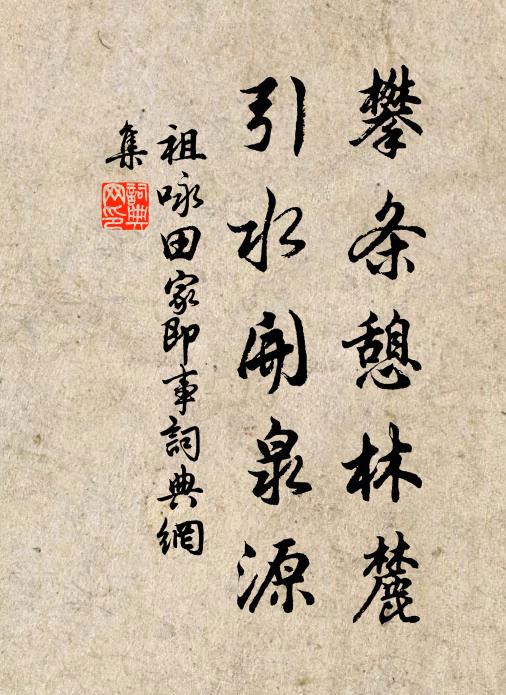 攀条憩林麓
引水開泉源
祖咏田家即事詞典網
集
詞典网印